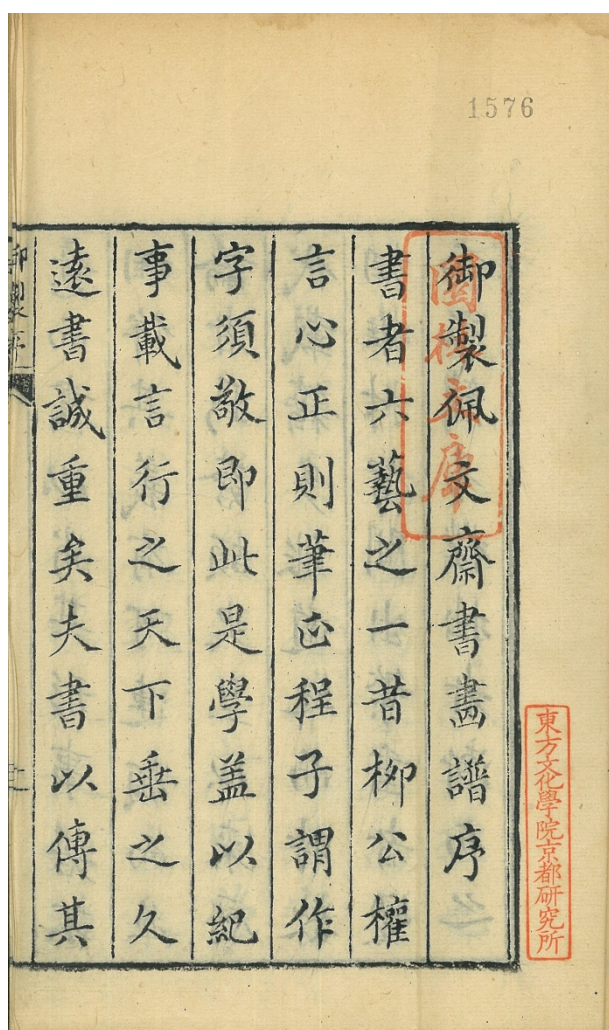 1576
御製佩文齋書畫譜序
書者六藝之一昔柳公權
言心正則筆正程子謂作
字須敬即此是學盖以紀
事載言行之天下垂之久
遠書誠重矣夫書以傳其
御製序
東方文化學院京都研究所